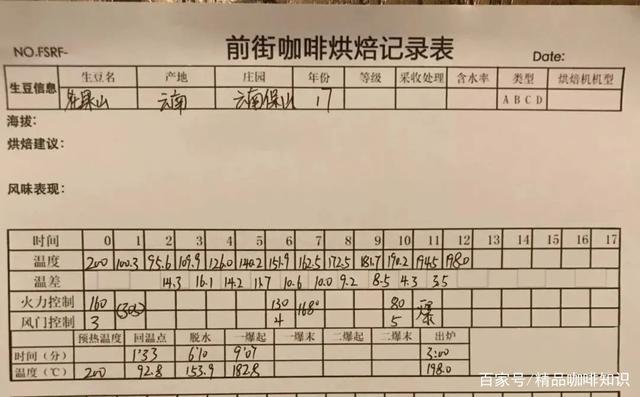 前街咖啡烘焙记录表
NO.FSRF- Date:
生豆信息 生豆名 产地 庄园 年份 等级 采收处理 含水率 类型 烘焙机机型
花果山 云南 云南保山 17 A B C D
海拔:
烘焙建议:
风味表现:
时间 0 1 2 3 4 5 6 7 8 9 10 11 12 13 14 15 16 17
温度 200 100.3 95.6 109.9 126.0 140.2 151.9 162.5 172.5 181.7 190.2 194.5 198.0
温差 14.3 16.1 14.2 11.7 10.6 10.0 9.2 8.5 4.3 3.5
火力控制 160 (30s) 130 168° 80 一爆
风门控制 3 4 5
预热温度 回温点 脱水 一爆起 一爆末 二爆起 二爆末 出炉
时间（分） 1'33 6'10 9'07 3:00
温度（℃） 200 92.8 153.9 182.8 198.0
百家号/精品咖啡知识